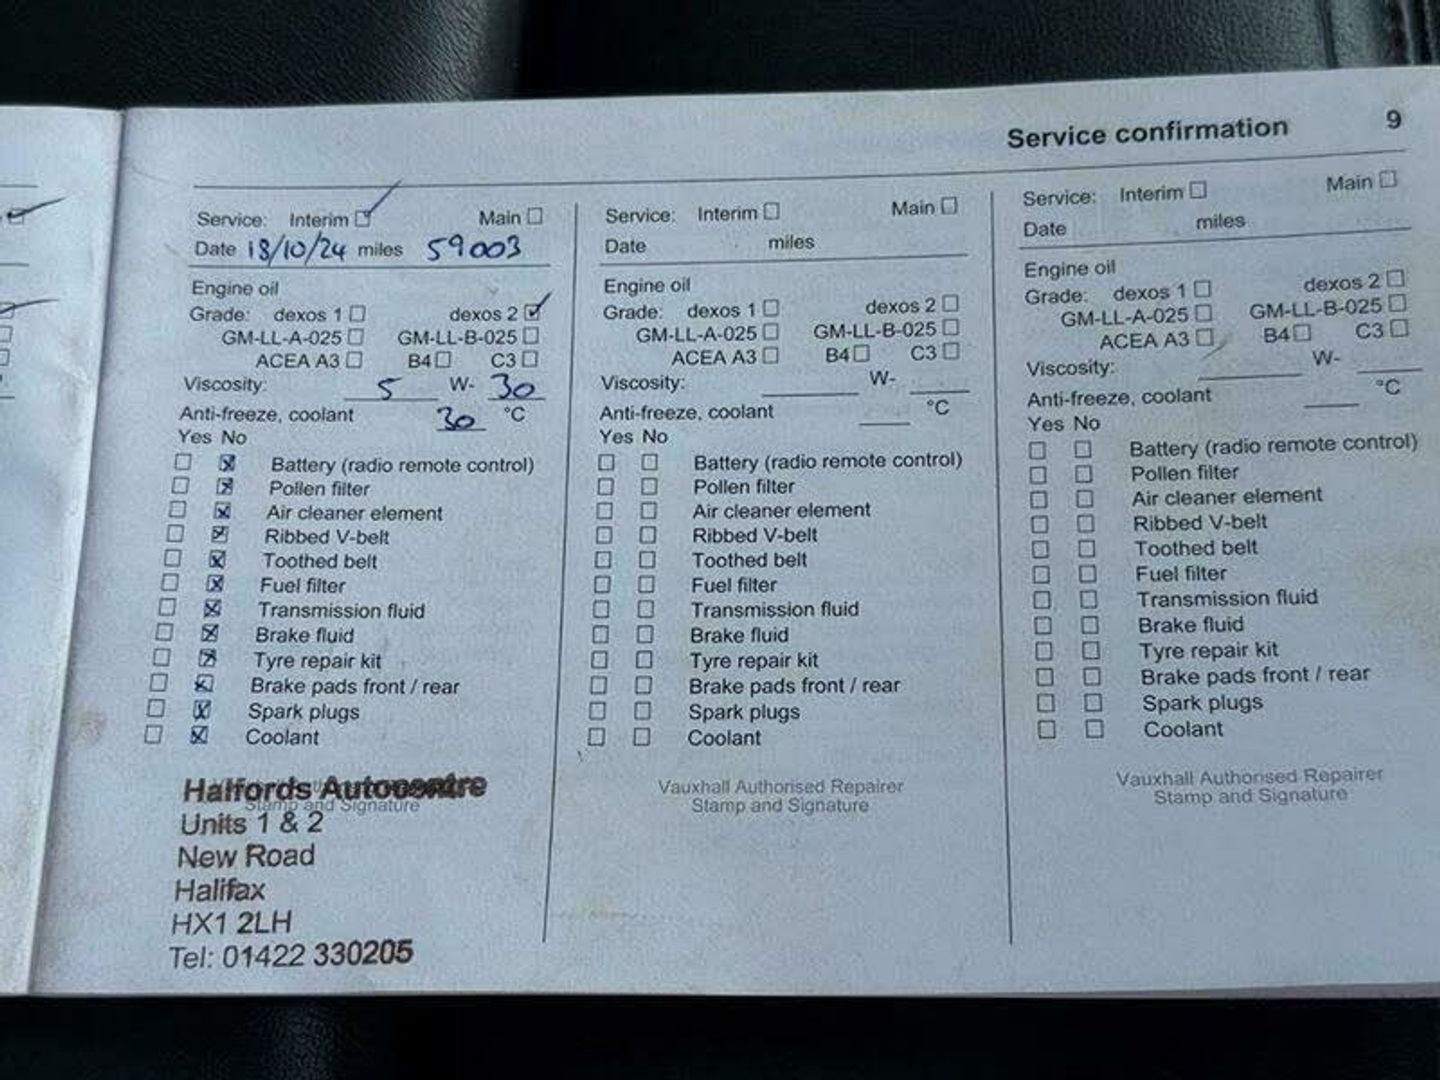 Service confirmation 9
Service: Interim ☑ Main ☐
Date 18/10/24 miles 59003
Engine oil
Grade: dexos 1 ☐ dexos 2 ☑
GM-LL-A-025 ☐ GM-LL-B-025 ☐
ACEA A3 ☐ B4 ☐ C3 ☐
Viscosity: 5 W- 30
Anti-freeze, coolant 30 °C
Yes No
☐ ☒ Battery (radio remote control)
☐ ☒ Pollen filter
☐ ☒ Air cleaner element
☐ ☒ Ribbed V-belt
☐ ☒ Toothed belt
☐ ☒ Fuel filter
☐ ☒ Transmission fluid
☐ ☒ Brake fluid
☐ ☒ Tyre repair kit
☐ ☒ Brake pads front / rear
☐ ☒ Spark plugs
☐ ☒ Coolant
Halfords Autocentre
Stamp and Signature
Units 1 & 2
New Road
Halifax
HX1 2LH
Tel: 01422 330205
Service: Interim ☐ Main ☐
Date miles
Engine oil
Grade: dexos 1 ☐ dexos 2 ☐
GM-LL-A-025 ☐ GM-LL-B-025 ☐
ACEA A3 ☐ B4 ☐ C3 ☐
Viscosity: ____ W- ____
Anti-freeze, coolant ____ °C
Yes No
☐ ☐ Battery (radio remote control)
☐ ☐ Pollen filter
☐ ☐ Air cleaner element
☐ ☐ Ribbed V-belt
☐ ☐ Toothed belt
☐ ☐ Fuel filter
☐ ☐ Transmission fluid
☐ ☐ Brake fluid
☐ ☐ Tyre repair kit
☐ ☐ Brake pads front / rear
☐ ☐ Spark plugs
☐ ☐ Coolant
Vauxhall Authorised Repairer
Stamp and Signature
Service: Interim ☐ Main ☐
Date miles
Engine oil
Grade: dexos 1 ☐ dexos 2 ☐
GM-LL-A-025 ☐ GM-LL-B-025 ☐
ACEA A3 ☐ B4 ☐ C3 ☐
Viscosity: ____ W- ____
Anti-freeze, coolant ____ °C
Yes No
☐ ☐ Battery (radio remote control)
☐ ☐ Pollen filter
☐ ☐ Air cleaner element
☐ ☐ Ribbed V-belt
☐ ☐ Toothed belt
☐ ☐ Fuel filter
☐ ☐ Transmission fluid
☐ ☐ Brake fluid
☐ ☐ Tyre repair kit
☐ ☐ Brake pads front / rear
☐ ☐ Spark plugs
☐ ☐ Coolant
Vauxhall Authorised Repairer
Stamp and Signature